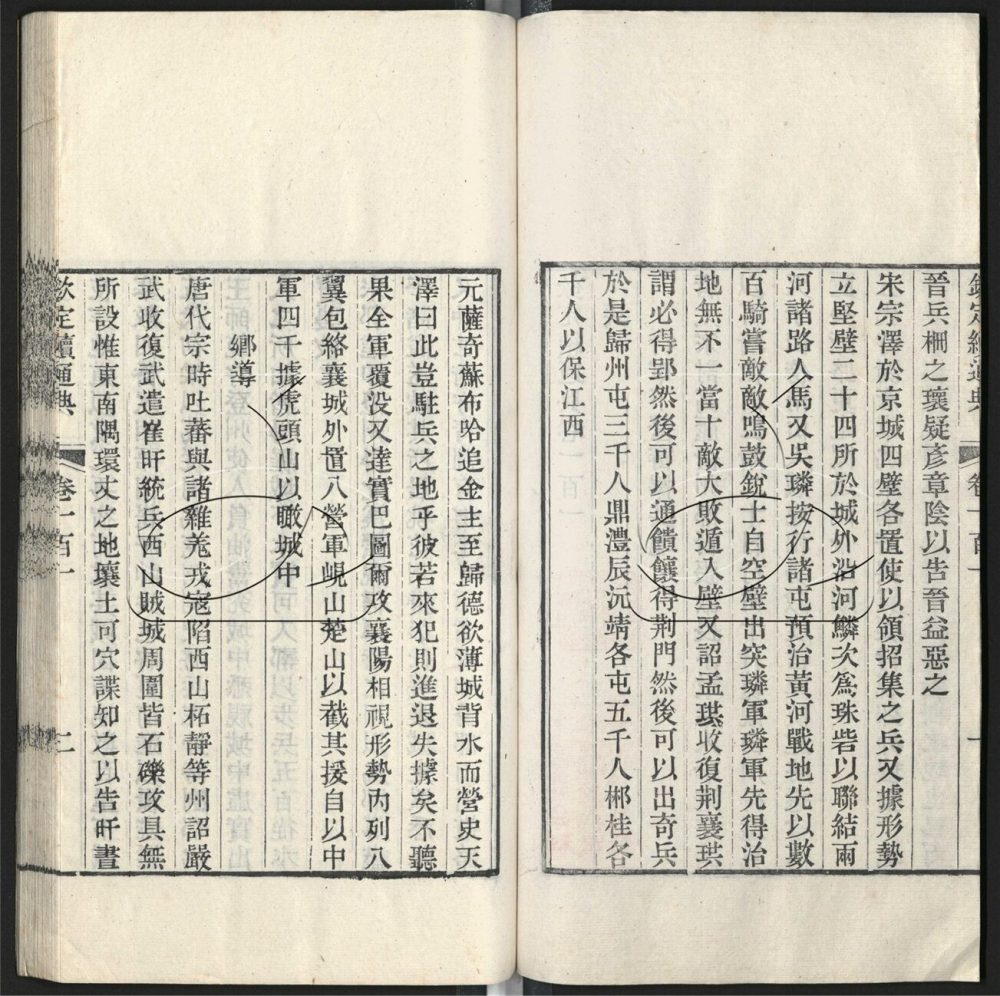 欽定續通典 卷一百一 一
晉兵柵之瓌疑彥章陰以告晉益惡之
宋宗澤於京城四壁各置使以領招集之兵又據形勢
立堅壁二十四所於城外沿河鱗次爲珠砦以聯結兩
河諸路人馬又吳璘按行諸屯預治黃河戰地先以數
百騎嘗敵敵鳴鼓銳士自空壁出突璘軍璘軍先得治
地無不一當十敵大敗遁入壁又詔孟珙收復荆襄珙
謂必得郢然後可以通饋饟得荆門然後可以出奇兵
於是歸州屯三千人鼎澧辰沅靖各屯五千人郴桂各
千人以保江西
元薩奇蘇布哈追金主至歸德欲薄城背水而營史天
澤曰此豈駐兵之地乎彼若來犯則進退失據矣不聽
果全軍覆没又達實巴圖爾攻襄陽相視形勢內列八
翼包絡襄城外置八營軍峴山楚山以截其援自以中
軍四千據虎頭山以瞰城中
鄉導
唐代宗時吐蕃與諸雜羌戎寇陷西山柘靜等州詔嚴
武收復武遣崔旰統兵西山賊城周圍皆石礫攻具無
所設惟東南隅環丈之地壤土可穴諜知之以告旰晝
欽定續通典 卷一百一 二